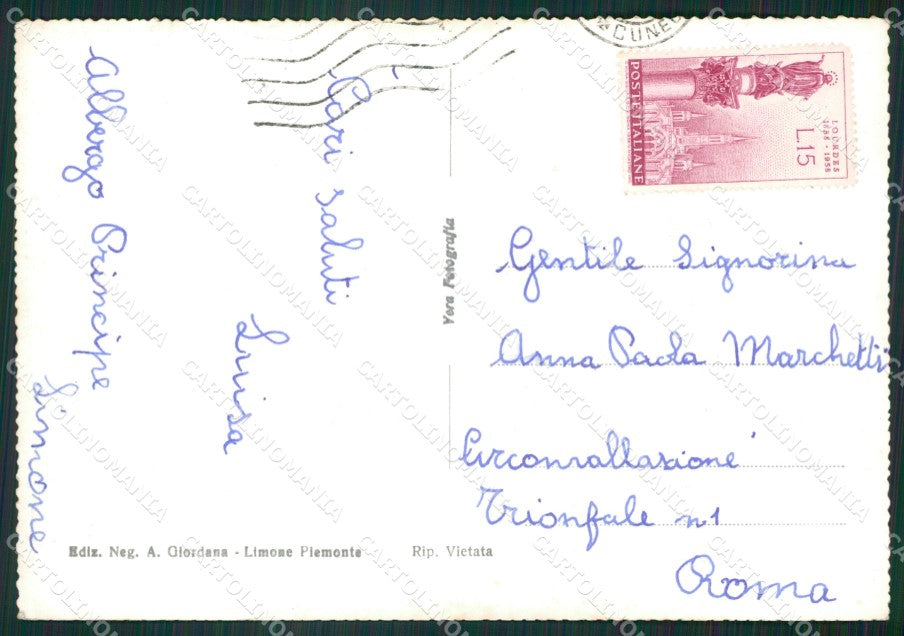 Albergo Principe
Limone
Cari saluti
Luisa
Vera Fotografia
CUNEO
POSTE ITALIANE
LOURDES
1858 · 1958
L.15
Gentile Signorina
Anna Paola Marchetti
Circonvallazione
Trionfale n1
Roma
Ediz. Neg. A. Giordana - Limone Piemonte
Rip. Vietata
CARTOLINOMANIA